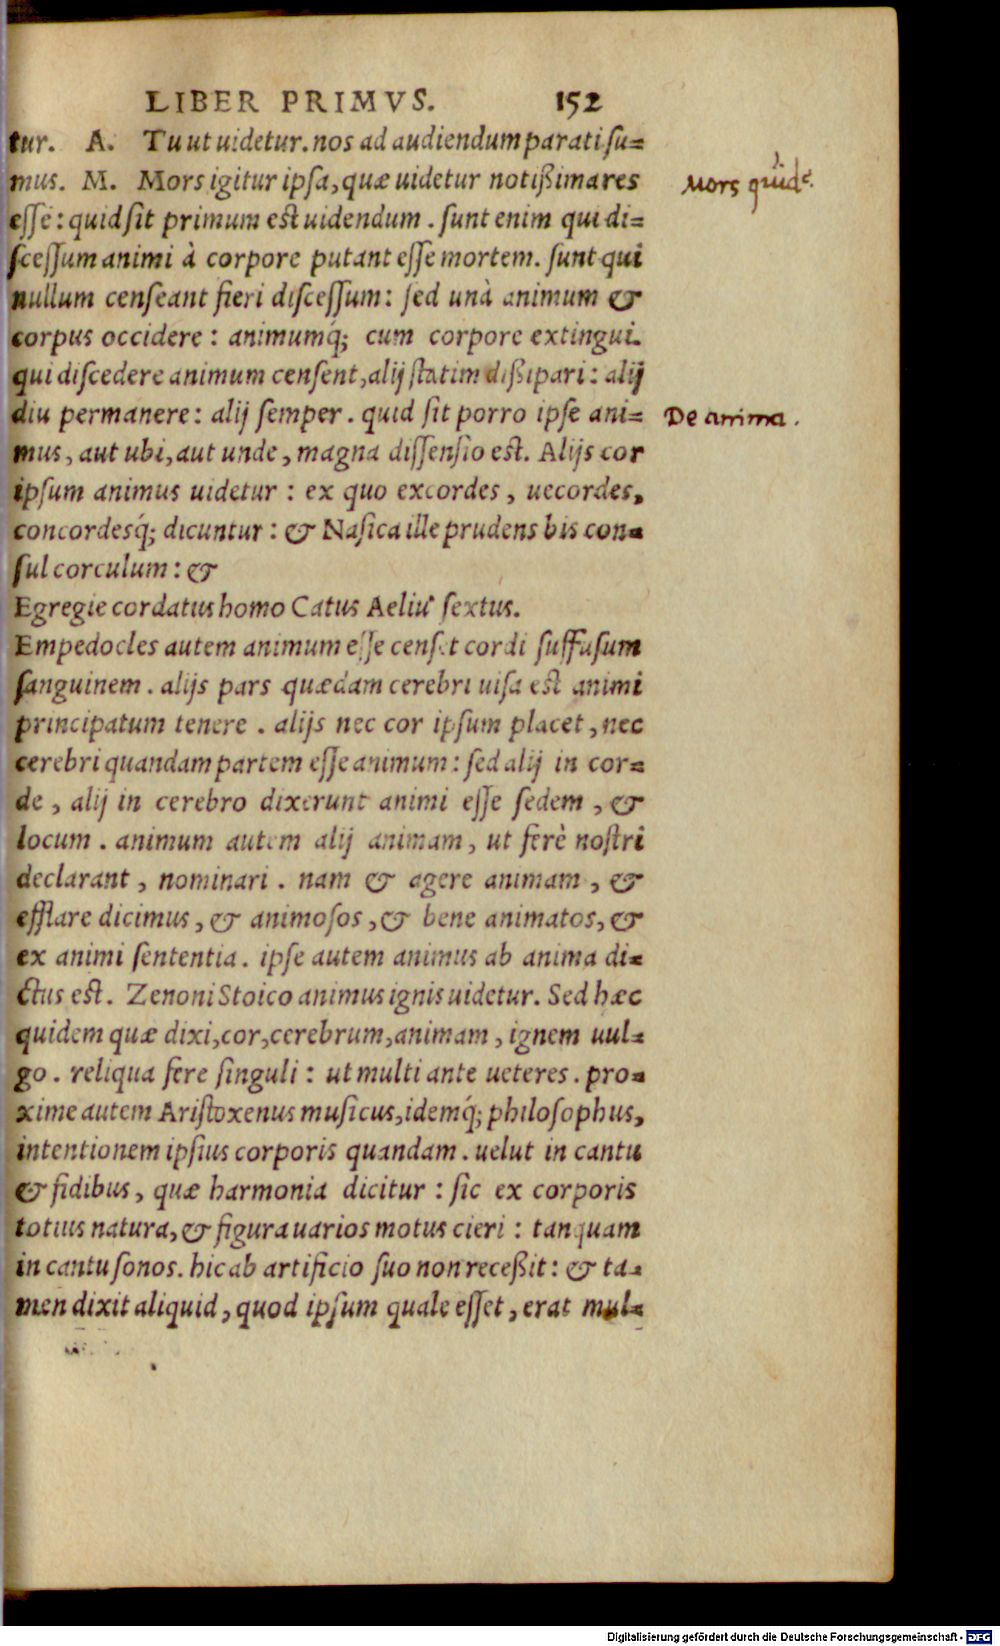 LIBER PRIMVS. 152
tur. A. Tu ut uidetur. nos ad audiendum parati su=
mus. M. Mors igitur ipsa, quæ uidetur notißima res
esse: quid sit primum est uidendum. sunt enim qui di=
scessum animi à corpore putant esse mortem. sunt qui
nullum censeant fieri discessum: sed unà animum &
corpus occidere: animumq́; cum corpore extingui.
qui discedere animum censent, alij statim dißipari: alij
diu permanere: alij semper. quid sit porro ipse ani=
mus, aut ubi, aut unde, magna dissensio est. Alijs cor
ipsum animus uidetur: ex quo excordes, uecordes,
concordesq́; dicuntur: & Nasica ille prudens bis con=
sul corculum: &
Egregie cordatus homo Catus Aeliu' sextus.
Empedocles autem animum esse censet cordi suffusum
sanguinem. alijs pars quædam cerebri uisa est animi
principatum tenere. alijs nec cor ipsum placet, nec
cerebri quandam partem esse animum: sed alij in cor=
de, alij in cerebro dixerunt animi esse sedem, &
locum. animum autem alij animam, ut ferè nostri
declarant, nominari. nam & agere animam, &
efflare dicimus, & animosos, & bene animatos, &
ex animi sententia. ipse autem animus ab anima di=
ctus est. Zenoni Stoico animus ignis uidetur. Sed hæc
quidem quæ dixi, cor, cerebrum, animam, ignem uul=
go. reliqua fere singuli: ut multi ante ueteres. pro=
xime autem Aristoxenus musicus, idemq́; philosophus,
intentionem ipsius corporis quandam. uelut in cantu
& fidibus, quæ harmonia dicitur: sic ex corporis
totius natura, & figura uarios motus cieri: tanquam
in cantu sonos. hic ab artificio suo non receßit: & ta=
men dixit aliquid, quod ipsum quale esset, erat mul=
Mors quid
De anima.
Digitalisierung gefördert durch die Deutsche Forschungsgemeinschaft - DFG